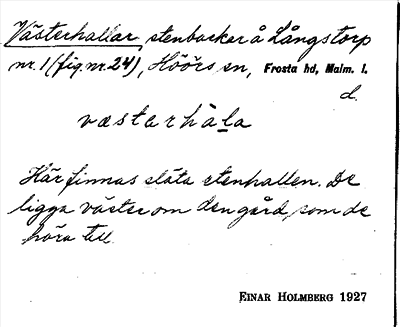 Västerhallar, stenbackar å Långstorp
nr. 1 (fig. nr. 24), Höörs sn, Frosta hd, Malm. l.
d.
væstarhàla
Här finnas släta stenhallen. De
ligga väster om den gård, som de
höra till.
EINAR HOLMBERG 1927